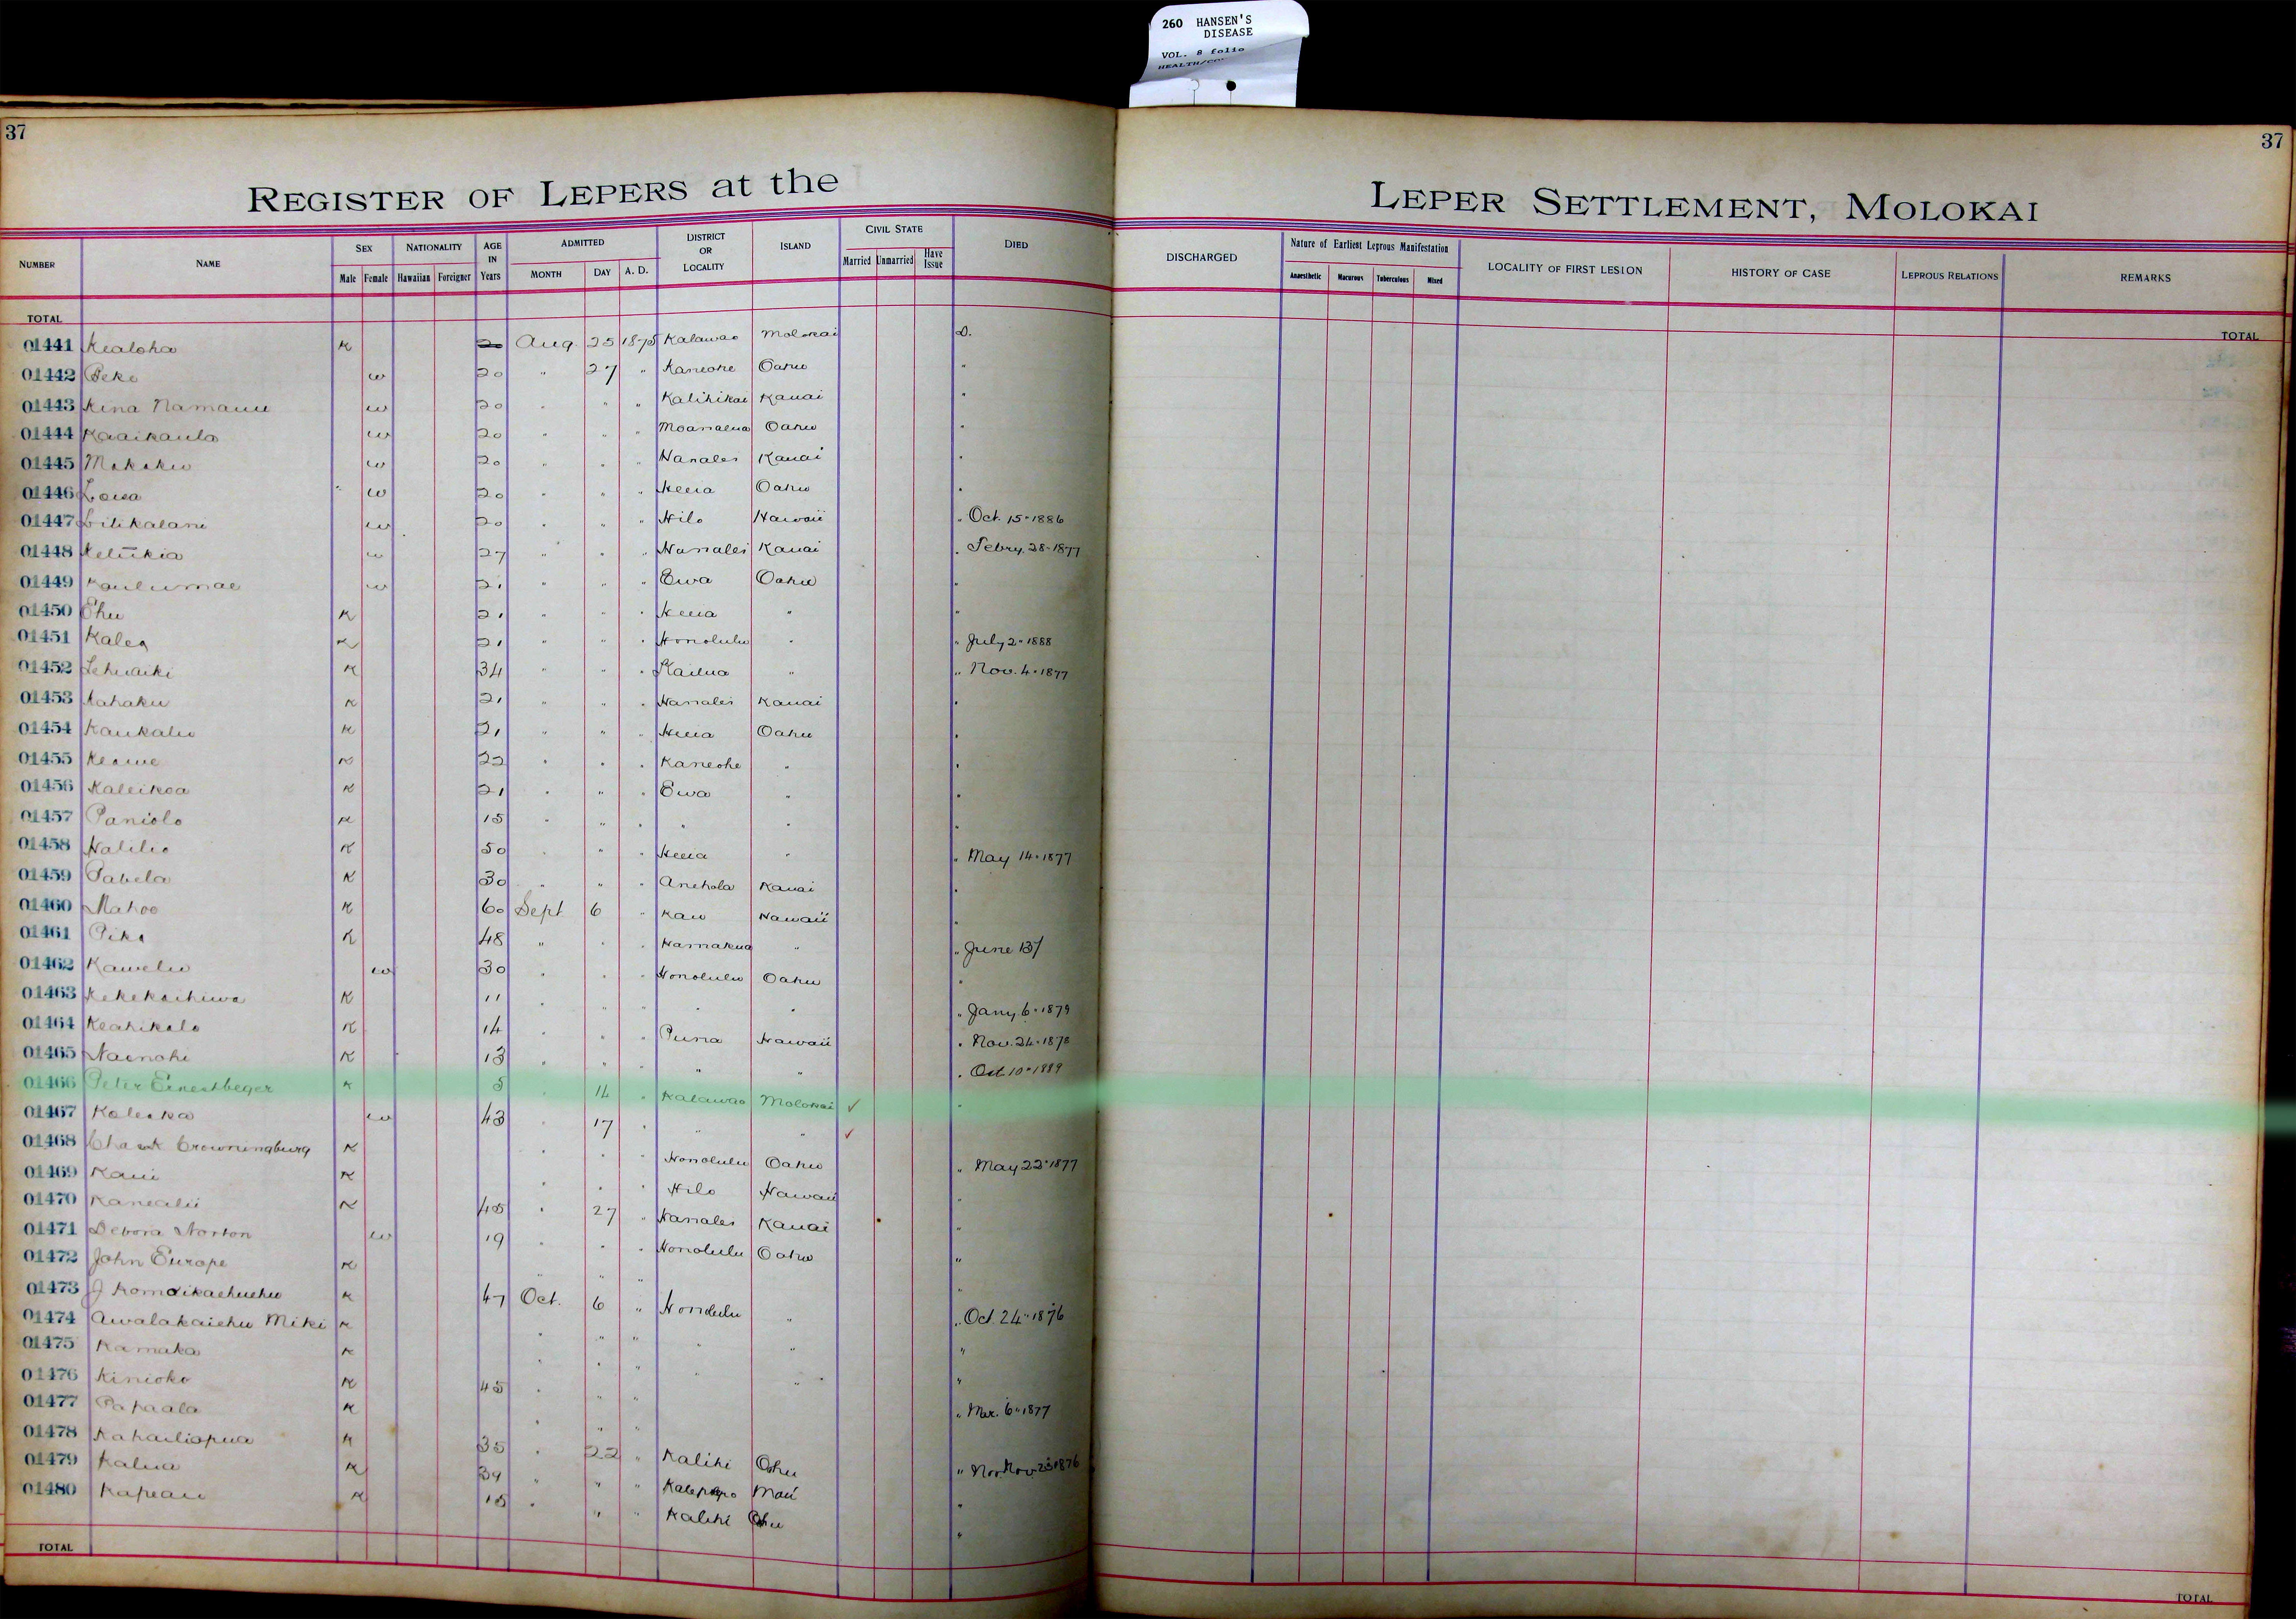 260 HANSEN'S
DISEASE
VOL. 8 folio
37
37
REGISTER OF LEPERS at the
LEPER SETTLEMENT, MOLOKAI
NUMBER NAME SEX Male Female NATIONALITY Hawaiian Foreigner AGE IN Years ADMITTED MONTH DAY A. D. DISTRICT OR LOCALITY ISLAND CIVIL STATE Married Unmarried Have Issue DIED
DISCHARGED Nature of Earliest Leprous Manifestation Anaesthetic Macurous Tuberculous Mixed LOCALITY OF FIRST LESION HISTORY OF CASE LEPROUS RELATIONS REMARKS
TOTAL
TOTAL
01441 Kealoha K 20 Aug. 25 1875 Kalawao Molokai D.
01442 Peke w 20 " 27 " Kaneohe Oahu "
01443 Kina Namauu w 20 " " " Kalihikai Kauai "
01444 Kaaikaula w 20 " " " Moanalua Oahu "
01445 w 20 " " " Hanalei Kauai "
01446 Loisa w 20 " " " Heeia Oahu "
01447 Lilikalani w 20 " " " Hilo Hawaii " Oct. 15 " 1886
01448 Keliikia w 27 " " " Hanalei Kauai " Febry. 28 " 1877
01449 Kaulumae w 21 " " " Ewa Oahu "
01450 Ehu K 21 " " " Heeia " "
01451 Kalea K 21 " " " Honolulu " " July 2 " 1888
01452 Lehuaiki K 34 " " " Kailua " " Nov. 4 " 1877
01453 Kahaku K 21 " " " Hanalei Kauai "
01454 Kaukaliu K 21 " " " Heeia Oahu "
01455 Keawe K 22 " " " Kaneohe " "
01456 Kaleikoa K 21 " " " Ewa " "
01457 Paniolo K 15 " " " " " "
01458 Halilio K 50 " " " Heeia " " May 14 " 1877
01459 Pabela K 30 " " " Anehola Kauai "
01460 Mahoe K 60 Sept 6 " Kau Hawaii "
01461 Pika K 48 " " " Hamakua " " June 137
01462 Kawelu w 30 " " " Honolulu Oahu "
01463 Kekekaihiwa K 11 " " " " " " Jany. 6 " 1879
01464 Keahikolo K 14 " " " Puna Hawaii " Nov. 24 " 1878
01465 Naenohi K 13 " " " " " " Oct. 10 " 1889
01466 Peter Einestbeger K 5 " 14 " Kalawao Molokai ✓ "
01467 Kaleika w 43 " 17 " " " ✓
01468 Crowningburg K " " " Honolulu Oahu " May 22 " 1877
01469 Kaui K " " " Hilo Hawaii "
01470 Kanealii K 45 " 27 " Hanalei Kauai "
01471 Debora Norton w 19 " " " Honolulu Oahu "
01472 John Europe K " " " "
01473 J K 47 Oct. 6 " Honolulu " " Oct. 24 " 1876
01474 Awalakaiehu Miki K " " " " " "
01475 Kamaka K " " " " " "
01476 Kinioko K 45 " " " " Mar. 6 " 1877
01477 Papaala K " " "
01478 Kahailiopua K 35 " 22 " Kalihi Oahu " Nov. 23 1876
01479 Kalua K 39 " " " Kalepolepo Maui "
01480 Kapeau K 15 " " " Kalihi Oahu "
TOTAL
TOTAL